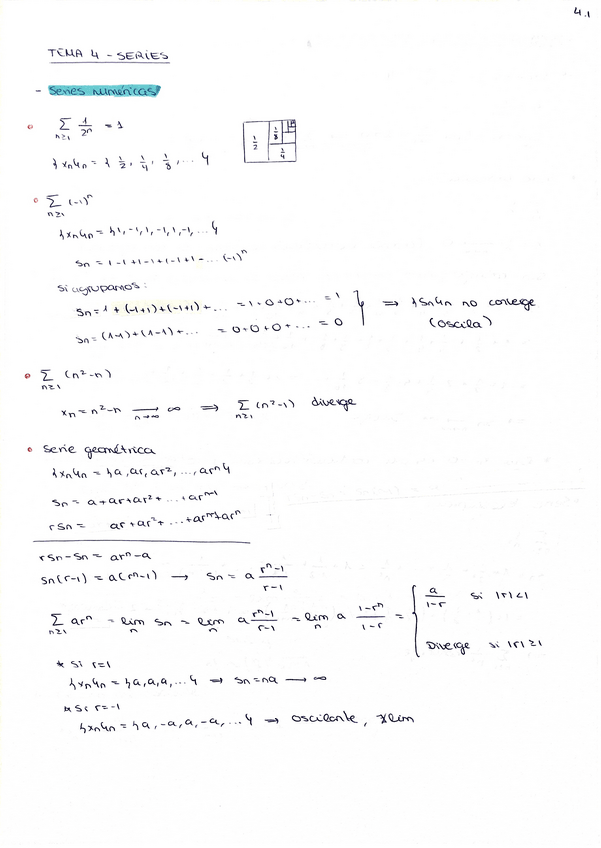 4.1
TEMA 4 - SERIES
- Series numéricas
∑ n≥1 1/2^n = 1
{xn}n = { 1/2, 1/4, 1/8, ... }
1/2 1/8 1/4
∑ n≥1 (-1)^n
{xn}n = {1, -1, 1, -1, 1, -1, ... }
Sn = 1-1+1-1+1-1+1- ... (-1)^n
Si agrupamos:
Sn = 1 + (-1+1)+(-1+1)+ ... = 1+0+0+ ... = 1
Sn = (1-1)+(1-1)+ ... = 0+0+0+ ... = 0
} ⇒ {Sn}n no converge
(oscila)
∑ n≥1 (n²-n)
xn = n²-n ⟶ n→∞ ∞ ⇒ ∑ n≥1 (n²-1) diverge
Serie geométrica
{xn}n = {a, ar, ar², ..., ar^n}
Sn = a+ar+ar²+ ... +ar^n-1
rSn = ar+ar²+ ... +ar^n-1+ar^n
rSn-Sn = ar^n-a
Sn(r-1) = a(r^n-1) → Sn = a (r^n-1)/(r-1)
∑ n≥1 ar^n = lim n Sn = lim n a (r^n-1)/(r-1) = lim n a (1-r^n)/(1-r) = { a/(1-r) si |r|<1
Diverge si |r|≥1
* Si r=1
{xn}n = {a, a, a, ... } ⇒ Sn=na → ∞
* Si r=-1
{xn}n = {a, -a, a, -a, ... } ⇒ oscilante, ∄ lim